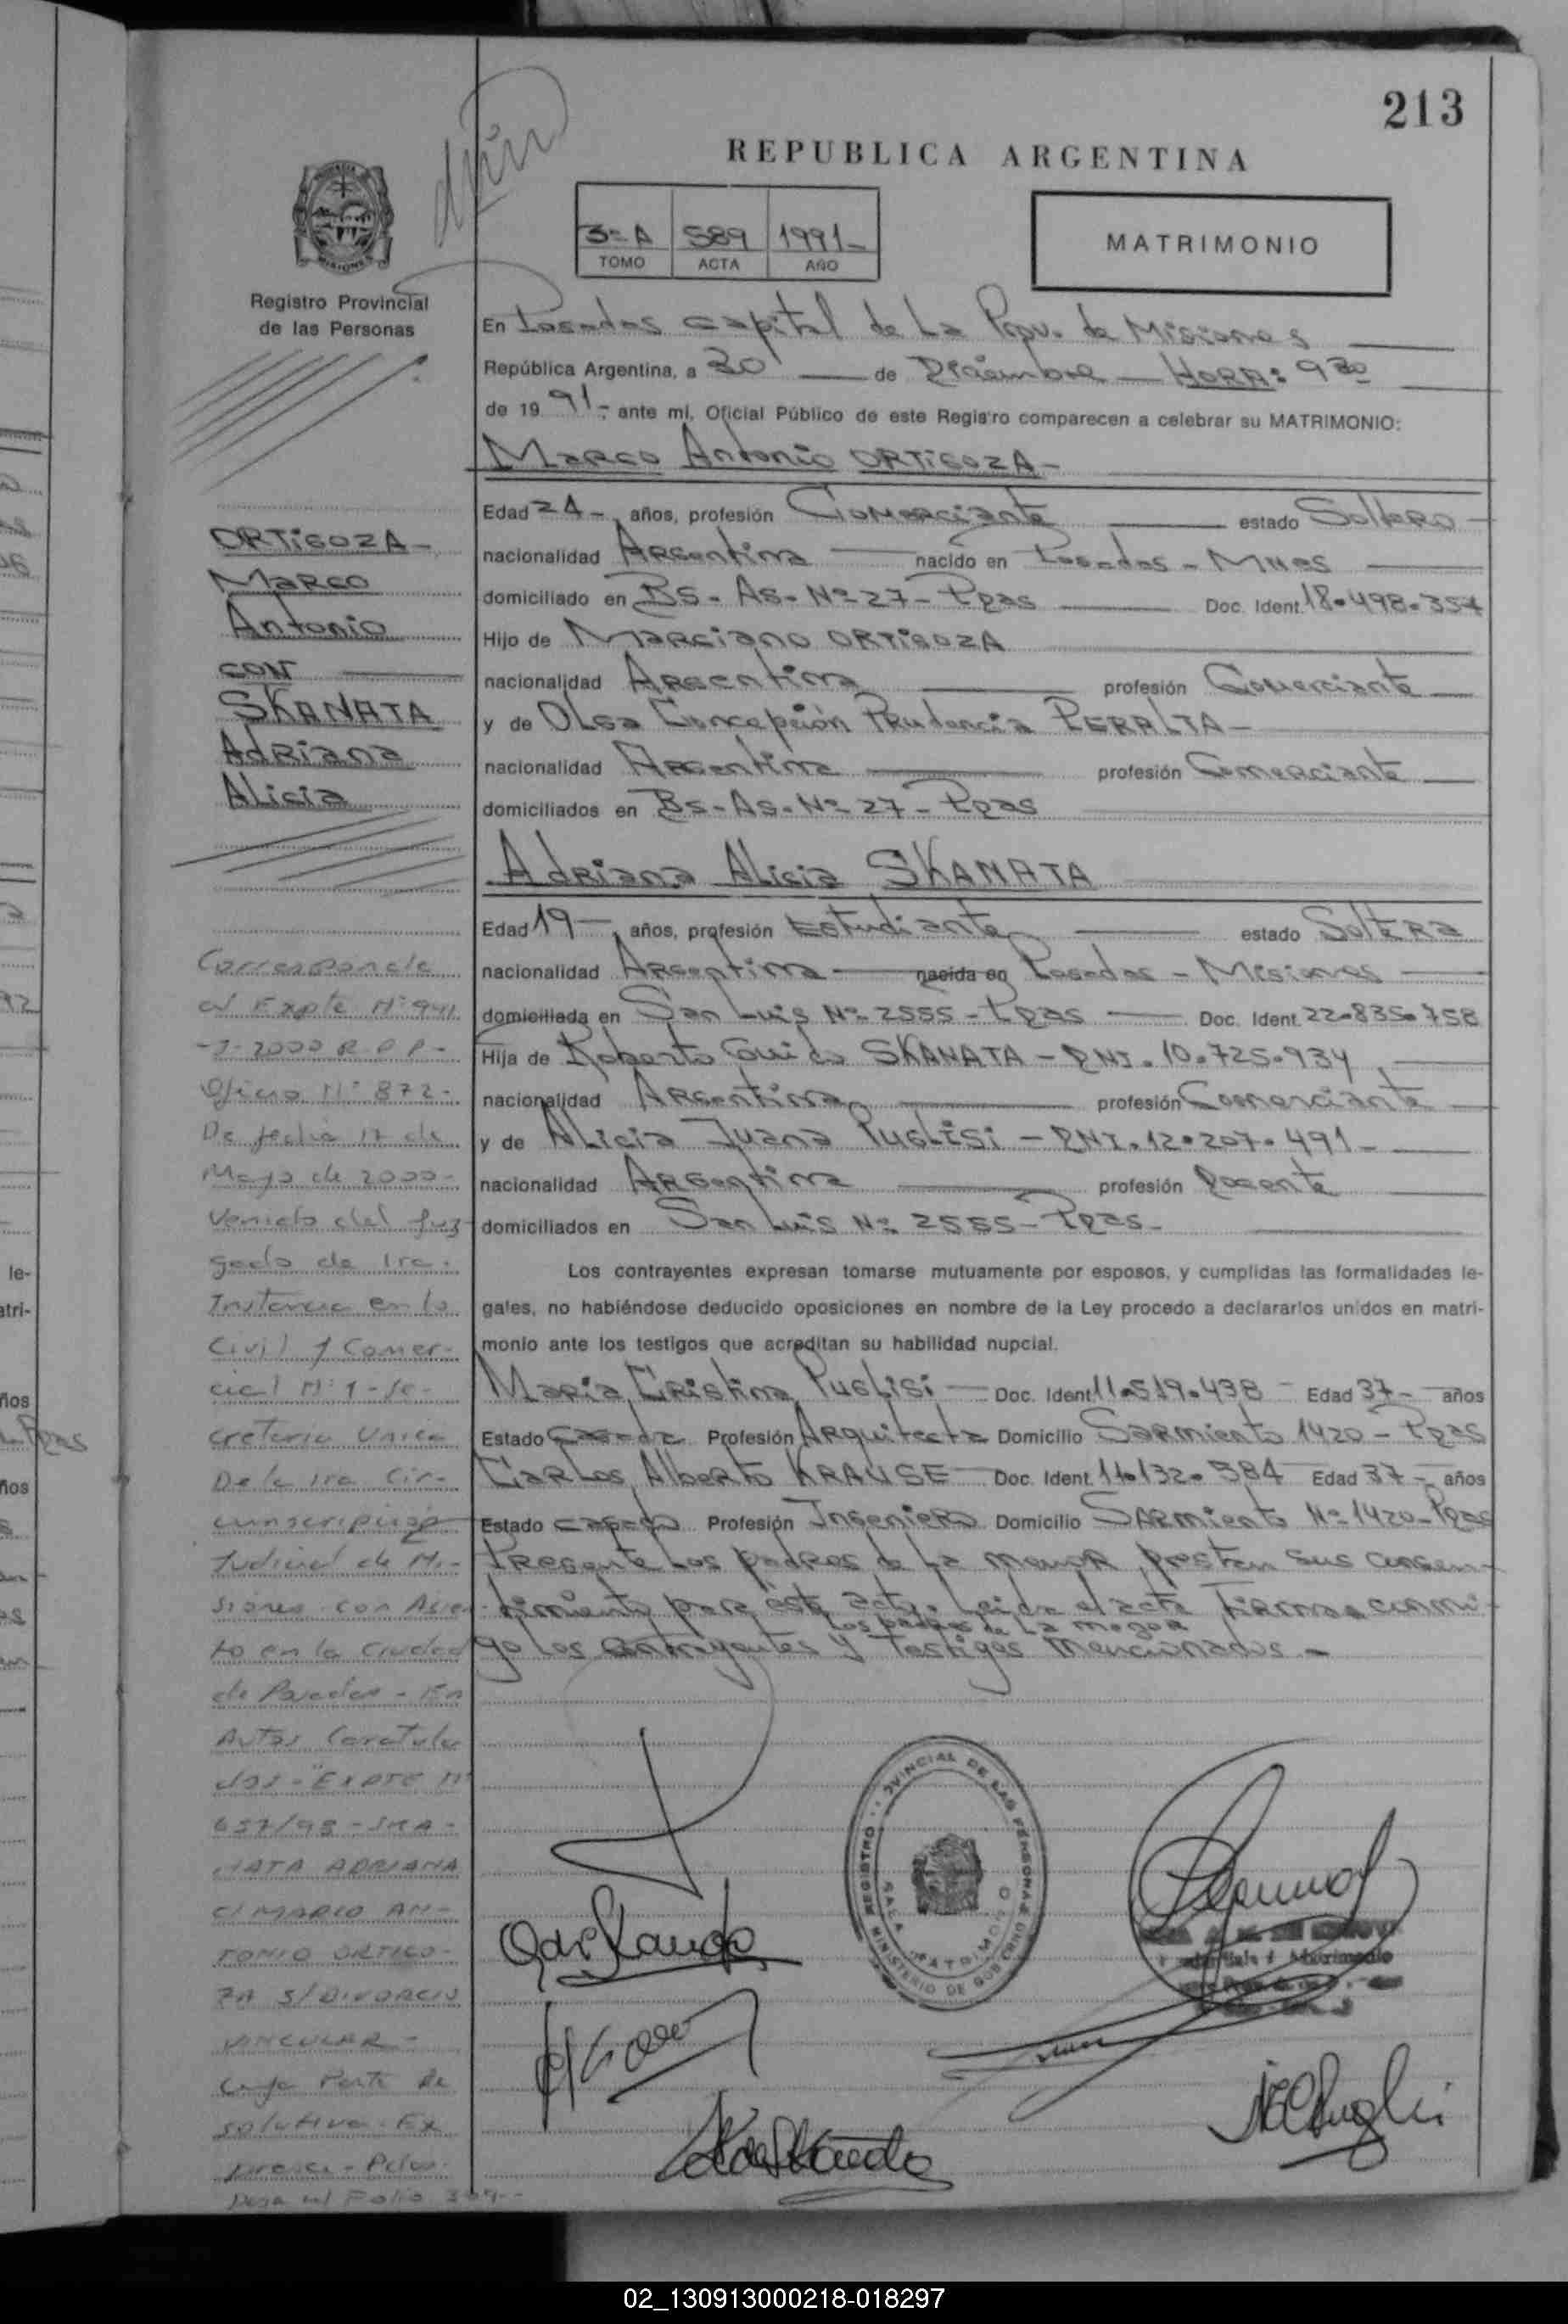 213
REPUBLICA ARGENTINA
3º A 589 1991-
TOMO ACTA AÑO
MATRIMONIO
Registro Provincial
de las Personas
En Posadas capital de La Prov. de Misiones
República Argentina, a 30 de Diciembre - HORA: 9 30
de 19 91- ante mí, Oficial Público de este Registro comparecen a celebrar su MATRIMONIO:
Marco Antonio ORTIGOZA-
Edad 24- años, profesión Comerciante estado Soltero-
nacionalidad Argentina nacido en Posadas - Mnes
domiciliado en Bs. As. Nº 27 - Pdas Doc. Ident. 18.498.357
Hijo de Marciano ORTIGOZA
nacionalidad Argentina profesión Comerciante
y de Olga Concepción Prudencia PERALTA-
nacionalidad Argentina profesión Comerciante
domiciliados en Bs. As. Nº 27 - Pdas
Adriana Alicia SKANATA
Edad 19- años, profesión Estudiante estado Soltera
nacionalidad Argentina nacida en Posadas - Misiones
domiciliada en San Luis Nº 2555 - Pdas Doc. Ident. 22.835.758
Hija de Roberto Guido SKANATA - DNI. 10.725.934
nacionalidad Argentina profesión Comerciante
y de Alicia Juana Puglisi - DNI. 12.207.491-
nacionalidad Argentina profesión Docente
domiciliados en San Luis Nº 2555 - Pdas-
Los contrayentes expresan tomarse mutuamente por esposos, y cumplidas las formalidades le-
gales, no habiéndose deducido oposiciones en nombre de la Ley procedo a declararlos unidos en matri-
monio ante los testigos que acreditan su habilidad nupcial.
Maria Cristina Puglisi - Doc. Ident. 11.519.438 - Edad 37- años
Estado Casada Profesión Arquitecta Domicilio Sarmiento 1420 - Pdas
Carlos Alberto KRAUSE Doc. Ident. 11.132.584 Edad 37- años
Estado casado Profesión Ingeniero Domicilio Sarmiento Nº 1420-Pdas
Presente Los padres de La menor, prestan sus consen-
timiento para éste acto. Leida el acta Firman conmi-
Los padres de La menor
go los contrayentes y testigos mencionados.-
ORTIGOZA-
Marco
Antonio
CON
SKANATA
Adriana
Alicia
Corresponde
al Expte Nº 941
-J-2000 R.P.P-
Oficio Nº 872-
De fecha 17 de
Mayo de 2000-
Venido del Juz
gado de 1ra.
Instancia en lo
Civil y Comer-
cial Nº 1-Se-
cretaria Unica
De la 1ra Cir-
cunscripción
Judicial de Mi-
siones con Asien-
to en la Ciudad
de Posadas - En
Autos Caratula
dos-"EXPTE Nº
657/98-SKA-
NATA ADRIANA
C/ MARCO AN-
TONIO ORTIGO-
ZA S/DIVORCIO
VINCULAR-
Cuya Parte Re
solutiva-Ex
REGISTRO PROVINCIAL DE LAS PERSONAS
MINISTERIO DE GOBIERNO
SALA MATRIMONIO
le-
atri-
ños
Pdas
ños
02_130913000218-018297